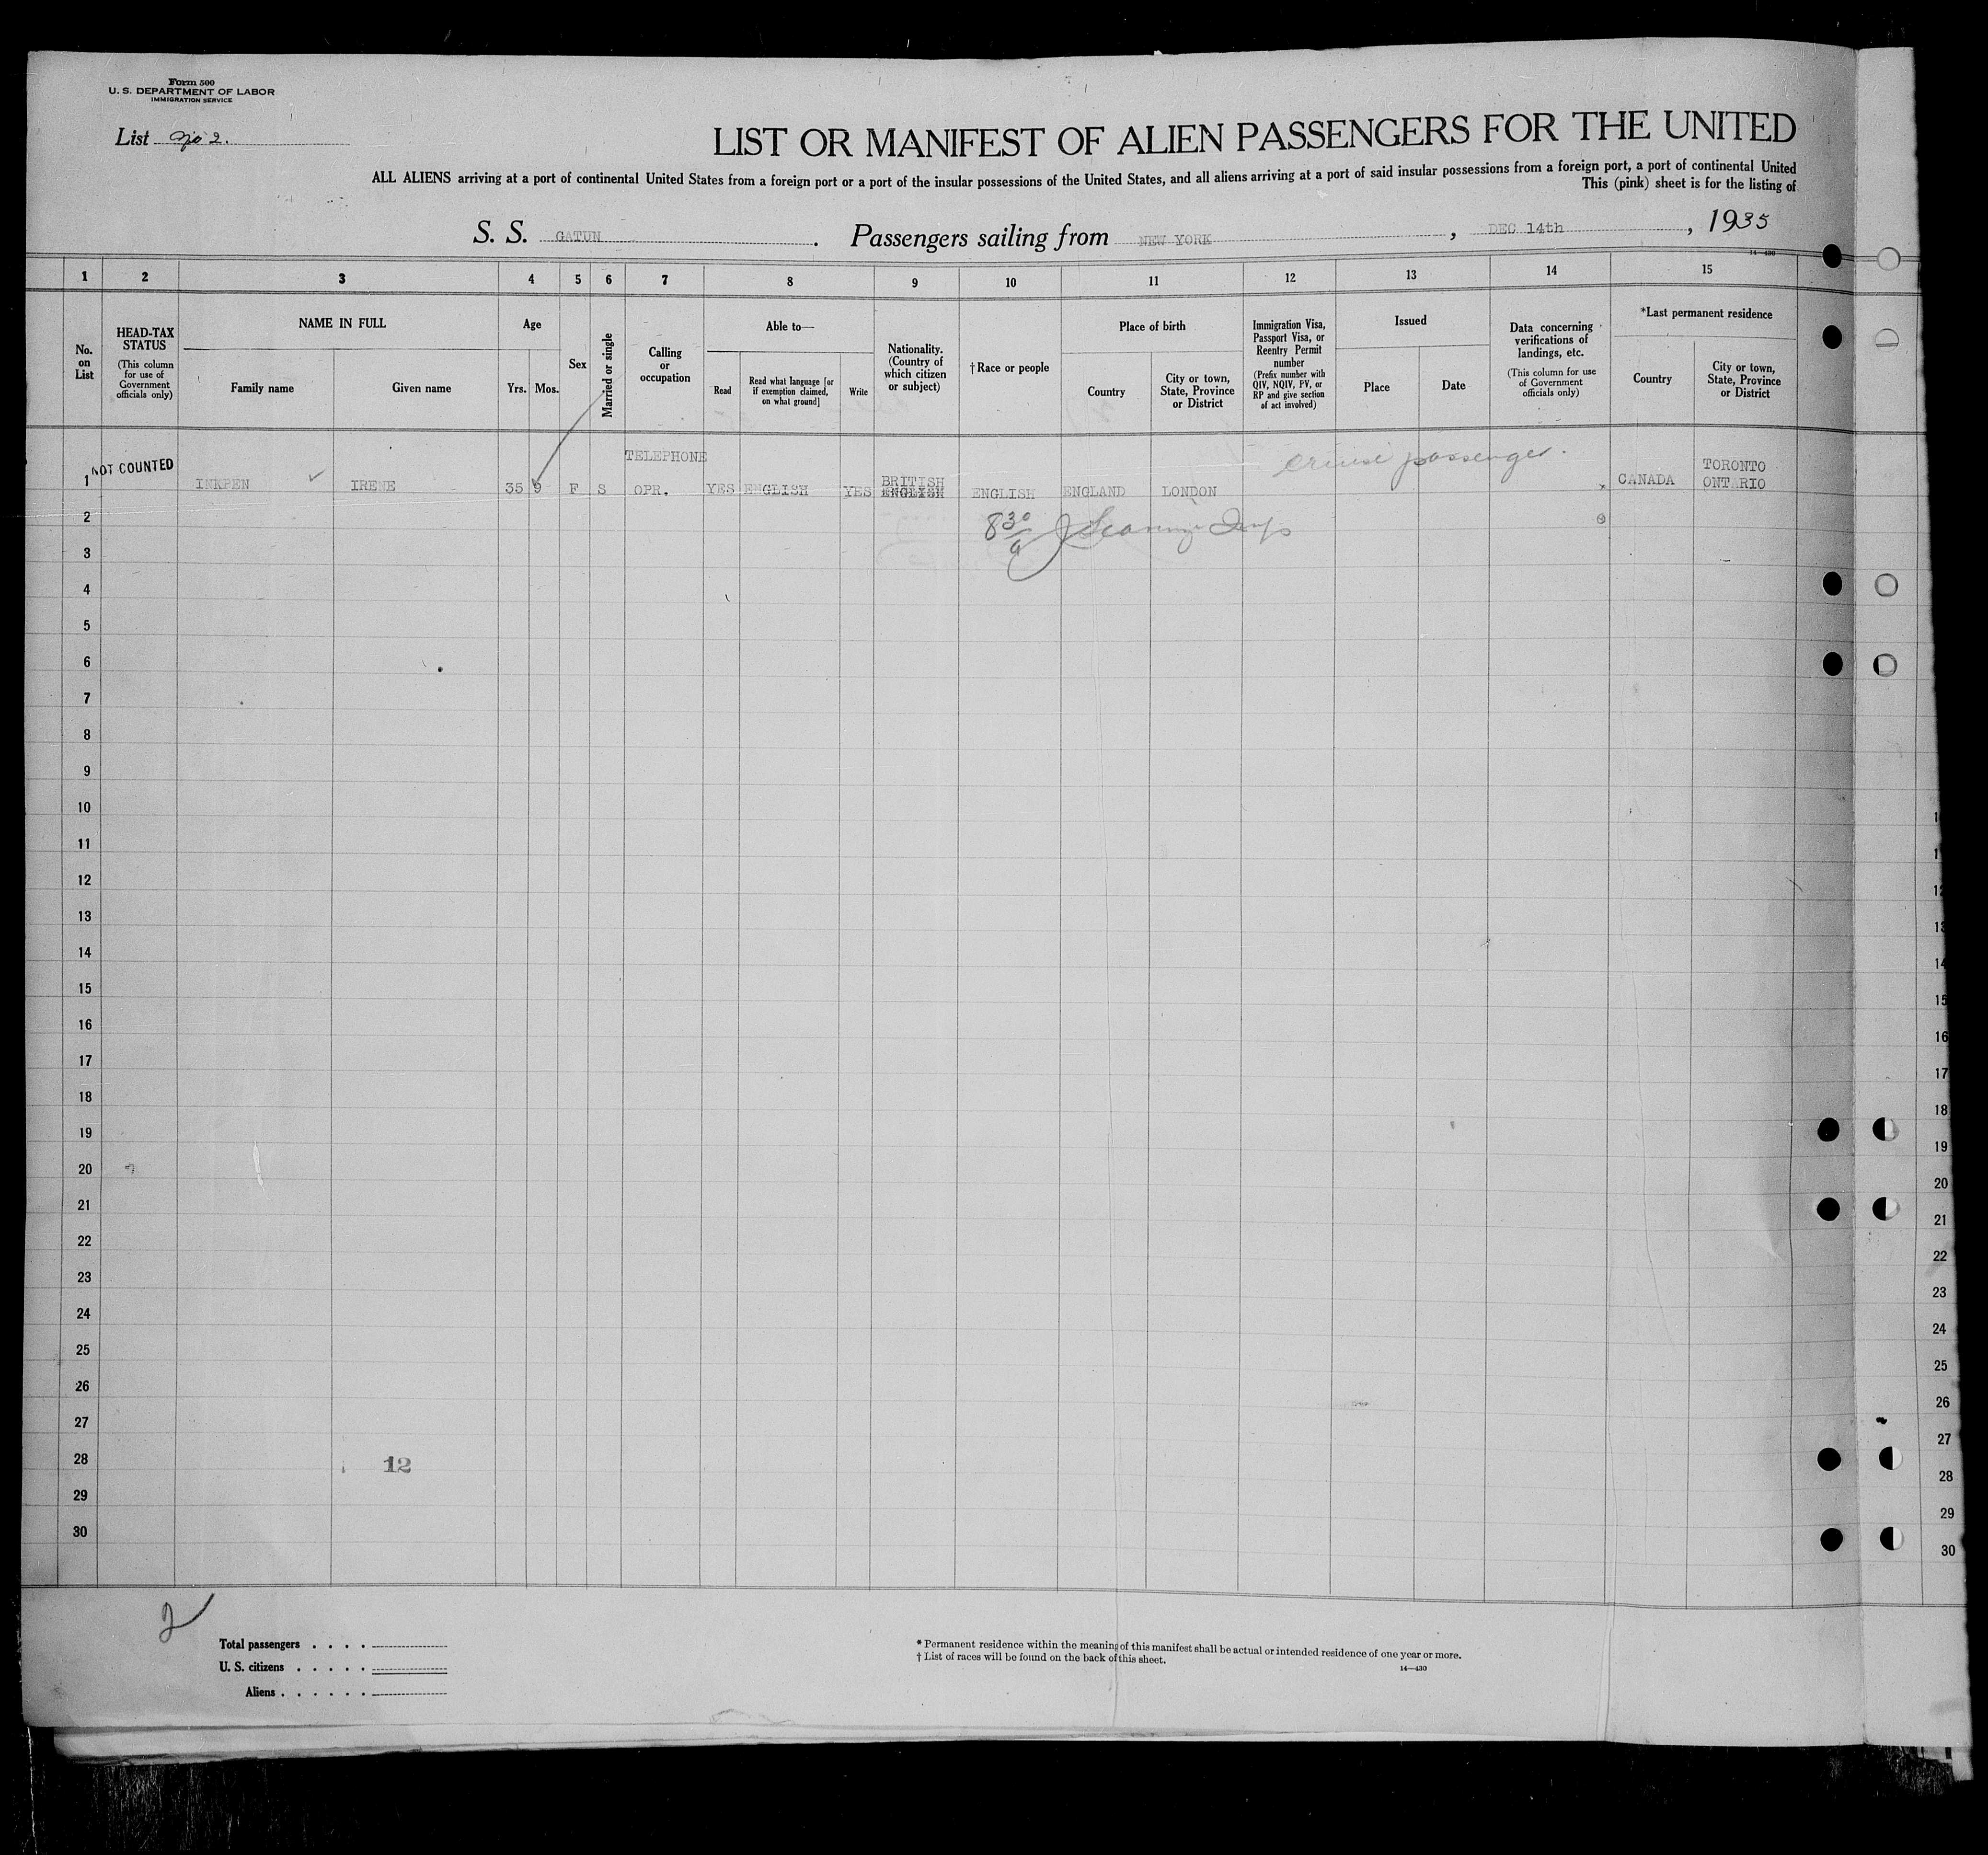 Form 500
U. S. DEPARTMENT OF LABOR
IMMIGRATION SERVICE
List No 2.
LIST OR MANIFEST OF ALIEN PASSENGERS FOR THE UNITED
ALL ALIENS arriving at a port of continental United States from a foreign port or a port of the insular possessions of the United States, and all aliens arriving at a port of said insular possessions from a foreign port, a port of continental United
This (pink) sheet is for the listing of
S. S. GATUN. Passengers sailing from NEW YORK, DEC 14th, 1935
14—430
1 2 3 4 5 6 7 8 9 10 11 12 13 14 15
No. on List
HEAD-TAX STATUS
(This column for use of Government officials only)
NAME IN FULL
Family name
Given name
Age
Yrs. Mos.
Sex
Married or single
Calling or occupation
Able to—
Read
Read what language [or if exemption claimed, on what ground]
Write
Nationality. (Country of which citizen or subject)
† Race or people
Place of birth
Country
City or town, State, Province or District
Immigration Visa, Passport Visa, or Reentry Permit number
(Prefix number with QIV, NQIV, PV, or RP and give section of act involved)
Issued
Place
Date
Data concerning verifications of landings, etc.
(This column for use of Government officials only)
*Last permanent residence
Country
City or town, State, Province or District
1 NOT COUNTED INKPEN IRENE 35 9 F S TELEPHONE OPR. YES ENGLISH YES BRITISH ENGLISH ENGLISH ENGLAND LONDON cruise passenger. x CANADA TORONTO ONTARIO
2 8 30/a
3
4
5
6
7
8
9
10
11
12
13
14
15
16
17
18
19
20
21
22
23
24
25
26
27
28 12
29
30
12
13
14
15
16
17
18
19
20
21
22
23
24
25
26
27
28
29
30
2
Total passengers . . . .
U. S. citizens . . . . .
Aliens . . . . . .
* Permanent residence within the meaning of this manifest shall be actual or intended residence of one year or more.
† List of races will be found on the back of this sheet.
14—430